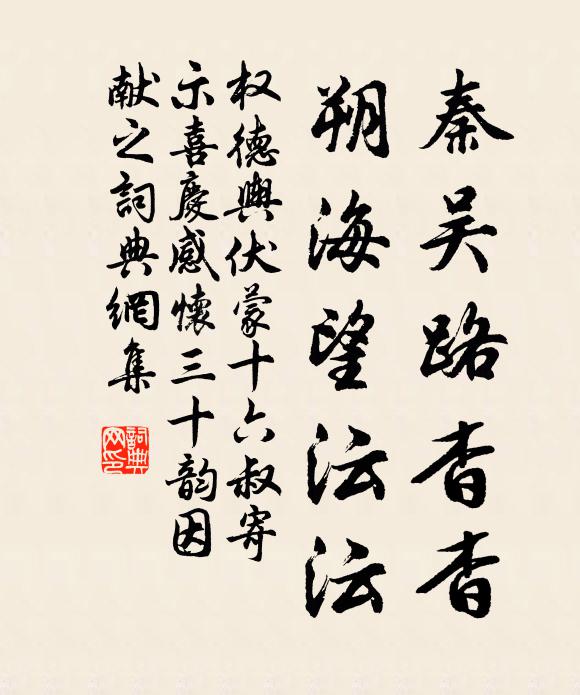 秦吴路杳杳
朔海望沄沄
权德輿伏蒙十六叔寄
示喜慶感懷三十韵因
献之詞典網集
詞典网印